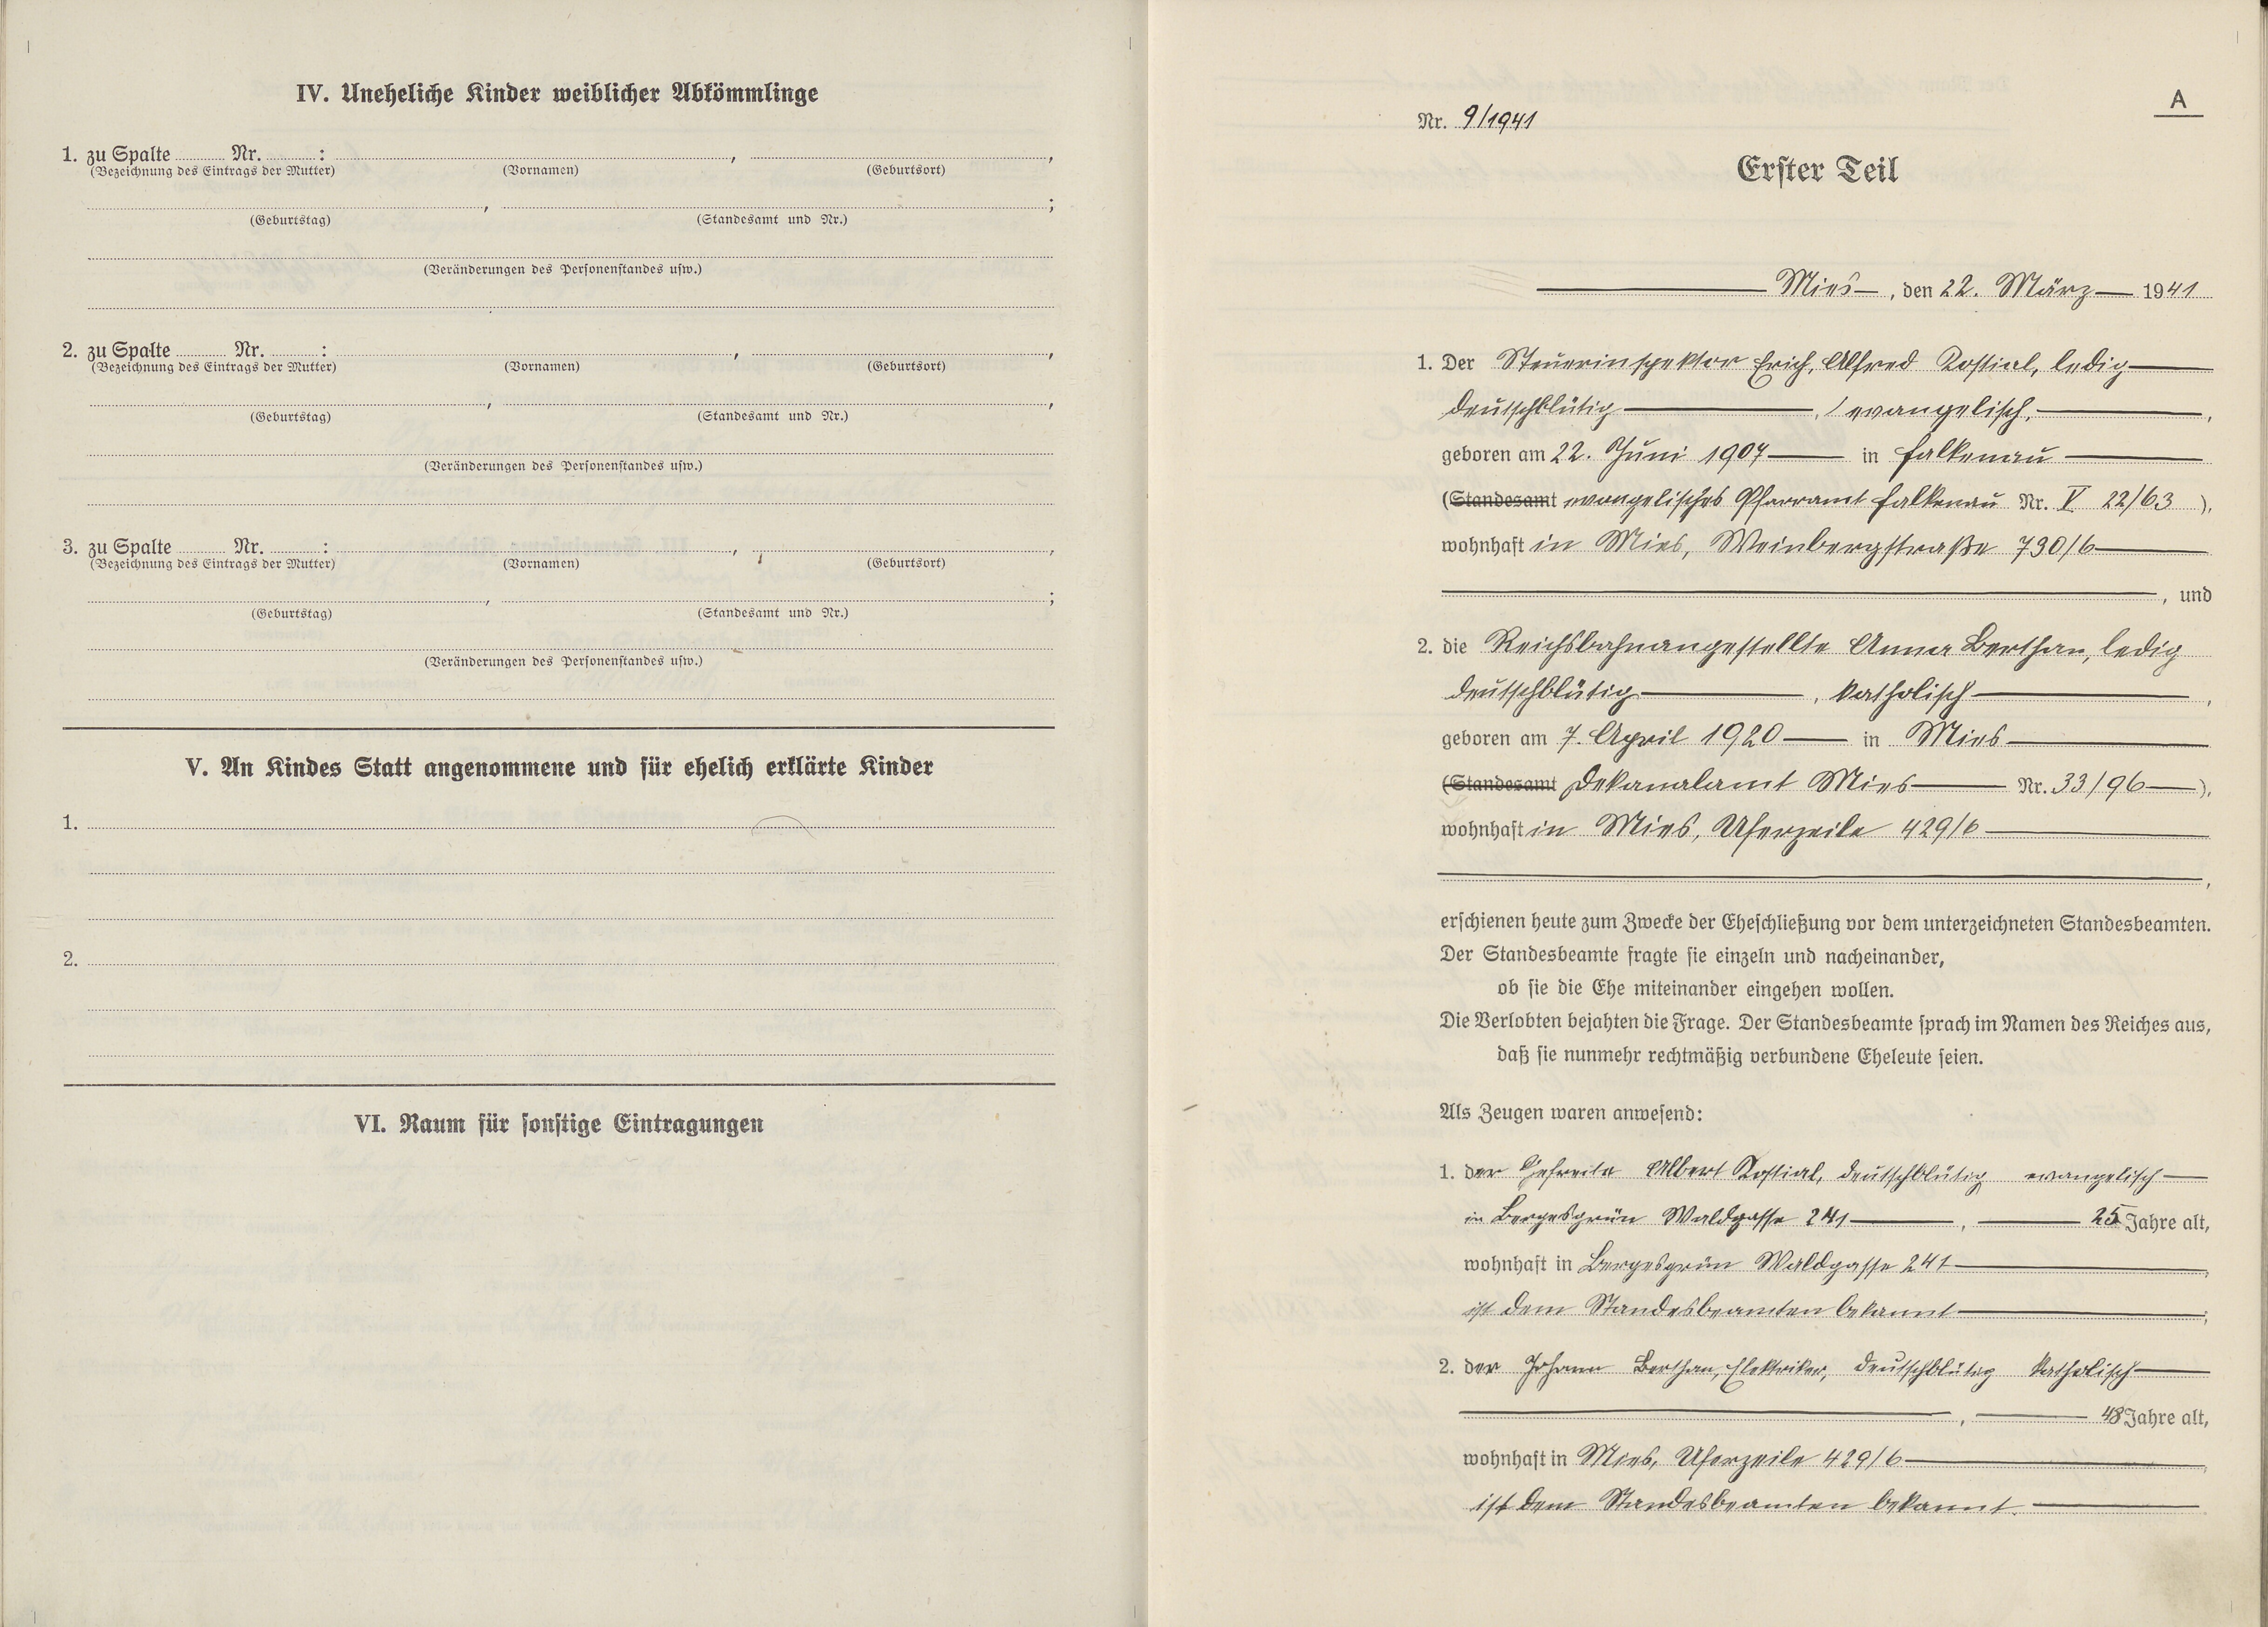 IV. Uneheliche Kinder weiblicher Abkömmlinge
1. zu Spalte ........ Nr. ........ : ........ , ........ ,
(Bezeichnung des Eintrags der Mutter) (Vornamen) (Geburtsort)
........ , ........ ;
(Geburtstag) (Standesamt und Nr.)
(Veränderungen des Personenstandes usw.)
2. zu Spalte ........ Nr. ........ : ........ , ........ ,
(Bezeichnung des Eintrags der Mutter) (Vornamen) (Geburtsort)
........ , ........ ,
(Geburtstag) (Standesamt und Nr.)
(Veränderungen des Personenstandes usw.)
3. zu Spalte ........ Nr. ........ : ........ , ........ ,
(Bezeichnung des Eintrags der Mutter) (Vornamen) (Geburtsort)
........ , ........ ;
(Geburtstag) (Standesamt und Nr.)
(Veränderungen des Personenstandes usw.)
V. An Kindes Statt angenommene und für ehelich erklärte Kinder
1.
2.
VI. Raum für sonstige Eintragungen
A
Nr. 9/1941
Erster Teil
Mies, den 22. März 1941
1. Der Steuerinspektor Erich, Alfred Kostial, ledig
deutschblütig, evangelisch,
geboren am 22. Juni 1907 in Falkenau
(Standesamt evangelisches Pfarramt Falkenau Nr. V 22/63),
wohnhaft in Mies, Weinbergstraße 790/6
, und
2. die Reichsbahnangestellte Anna Berthan, ledig
deutschblütig, katholisch,
geboren am 7. April 1920 in Mies
(Standesamt Dekanalamt Mies Nr. 33/96),
wohnhaft in Mies, Uferzeile 429/6
,
erschienen heute zum Zwecke der Eheschließung vor dem unterzeichneten Standesbeamten.
Der Standesbeamte fragte sie einzeln und nacheinander,
ob sie die Ehe miteinander eingehen wollen.
Die Verlobten bejahten die Frage. Der Standesbeamte sprach im Namen des Reiches aus,
daß sie nunmehr rechtmäßig verbundene Eheleute seien.
Als Zeugen waren anwesend:
1. der Gefreite Albert Kostial, deutschblütig evangelisch
in Bergesgrün Waldgasse 241, 25 Jahre alt,
wohnhaft in Bergesgrün Waldgasse 241,
ist dem Standesbeamten bekannt;
2. der Johann Berthan, Elektriker, deutschblütig katholisch
, 48 Jahre alt,
wohnhaft in Mies, Uferzeile 429/6,
ist dem Standesbeamten bekannt.